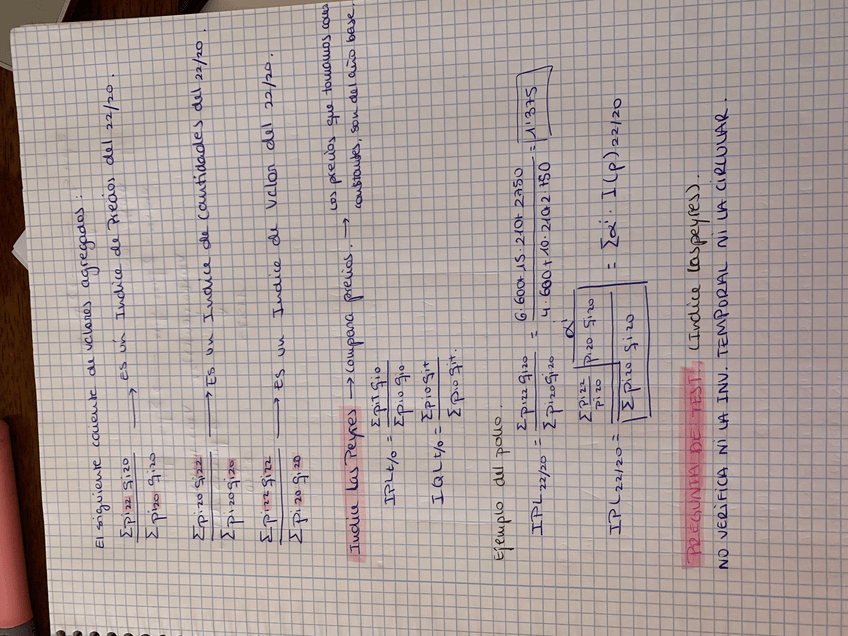 El siguiente cociente de valores agregados:
Σpi22 qi20 / Σpi20 qi20 → Es un Indice de Precios del 22/20.
Σpi20 qi22 / Σpi20 qi20 → Es un Indice de cantidades del 22/20.
Σpi22 qi22 / Σpi20 qi20 → Es un Indice de valor del 22/20.
Indice LasPeyres → Compara precios. → Los precios que tomamos como
constantes, son del año base.
IPL t/0 = ΣpiT qi0 / Σpi0 qi0
IQL t/0 = Σpi0 qit / Σpi0 qit.
Ejemplo del pollo.
IPL 22/20 = Σpi22 qi20 / Σpi20 qi20 = 6·600+15·210+2750 / 4·600+10·210+2·750 = 1'375
αi
IPL 22/20 = Σ pi22/pi20 pi20 qi20 / Σpi20 qi20 = Σαi · I(p) 22/20
PREGUNTA DE TEST. (Indice Laspeyres).
NO VERIFICA NI LA INV. TEMPORAL NI LA CIRCULAR.